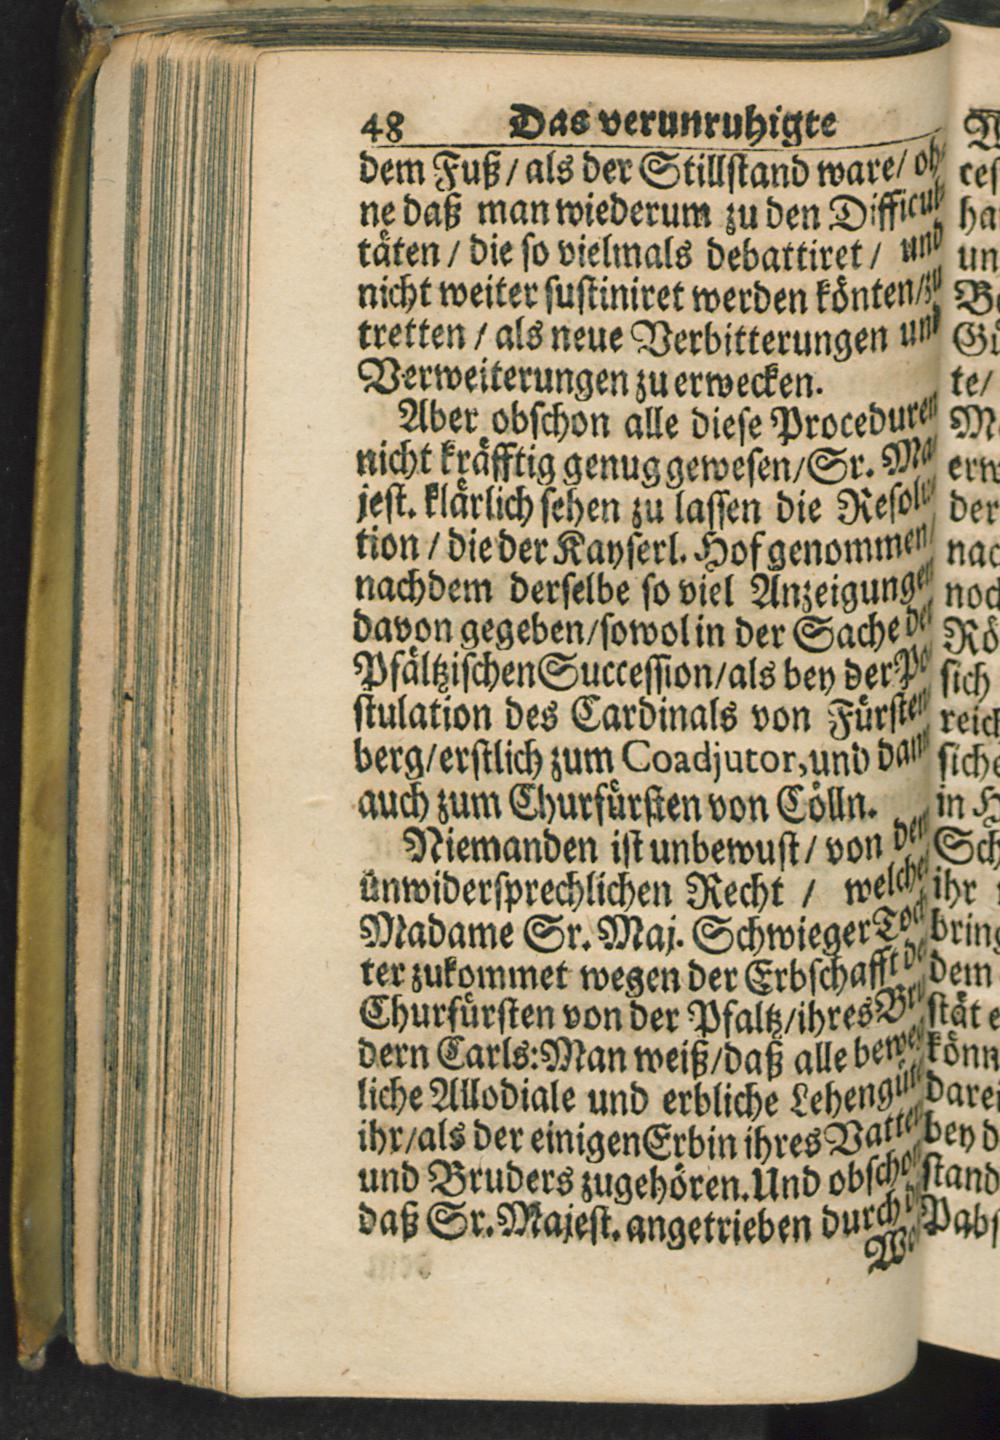 48 Das verunruhigte
dem Fuß / als der Stillstand ware / oh-
ne daß man wiederum zu den Difficul-
täten / die so vielmals debattiret / und
nicht weiter sustiniret werden könten / zu
tretten / als neue Verbitterungen und
Verweiterungen zu erwecken.
Aber obschon alle diese Proceduren
nicht kräfftig genug gewesen / Sr. Ma-
jest. klärlich sehen zu lassen die Resolu-
tion / die der Kayserl. Hof genommen /
nachdem derselbe so viel Anzeigungen
davon gegeben / sowol in der Sache der
Pfältzischen Succession / als bey der Po-
stulation des Cardinals von Fürsten-
berg / erstlich zum Coadjutor, und dann
auch zum Churfürsten von Cölln.
Niemanden ist unbewust / von dem
unwidersprechlichen Recht / welches
Madame Sr. Maj. Schwieger Toch-
ter zukommet wegen der Erbschafft des
Churfürsten von der Pfaltz / ihres Bru-
dern Carls: Man weiß / daß alle beweg-
liche Allodiale und erbliche Lehengüter
ihr / als der einigen Erbin ihres Vatters
und Bruders zugehören. Und obschon
daß Sr. Majest. angetrieben durch
ces
ha
un
Be
te /
der
nac
noch
Rö
sich
reich
in H
Sch
ihr
bring
dem
stät e
könn
darei
bey d
stand
Pabs